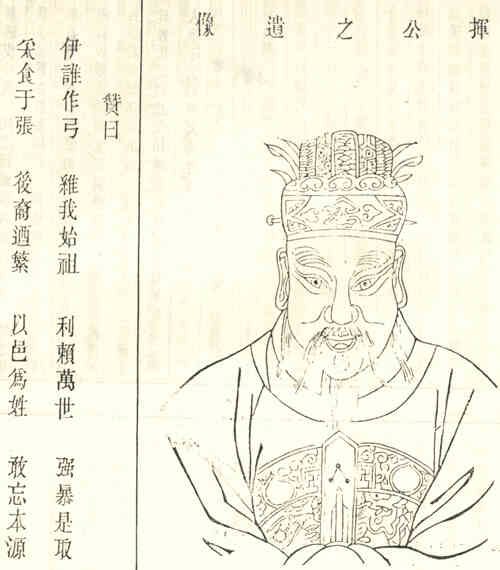 揮公之遺像
贊曰
伊誰作弓 維我始祖 利賴萬世 强暴是取
采食于張 後裔迺繁 以邑爲姓 敢忘本源